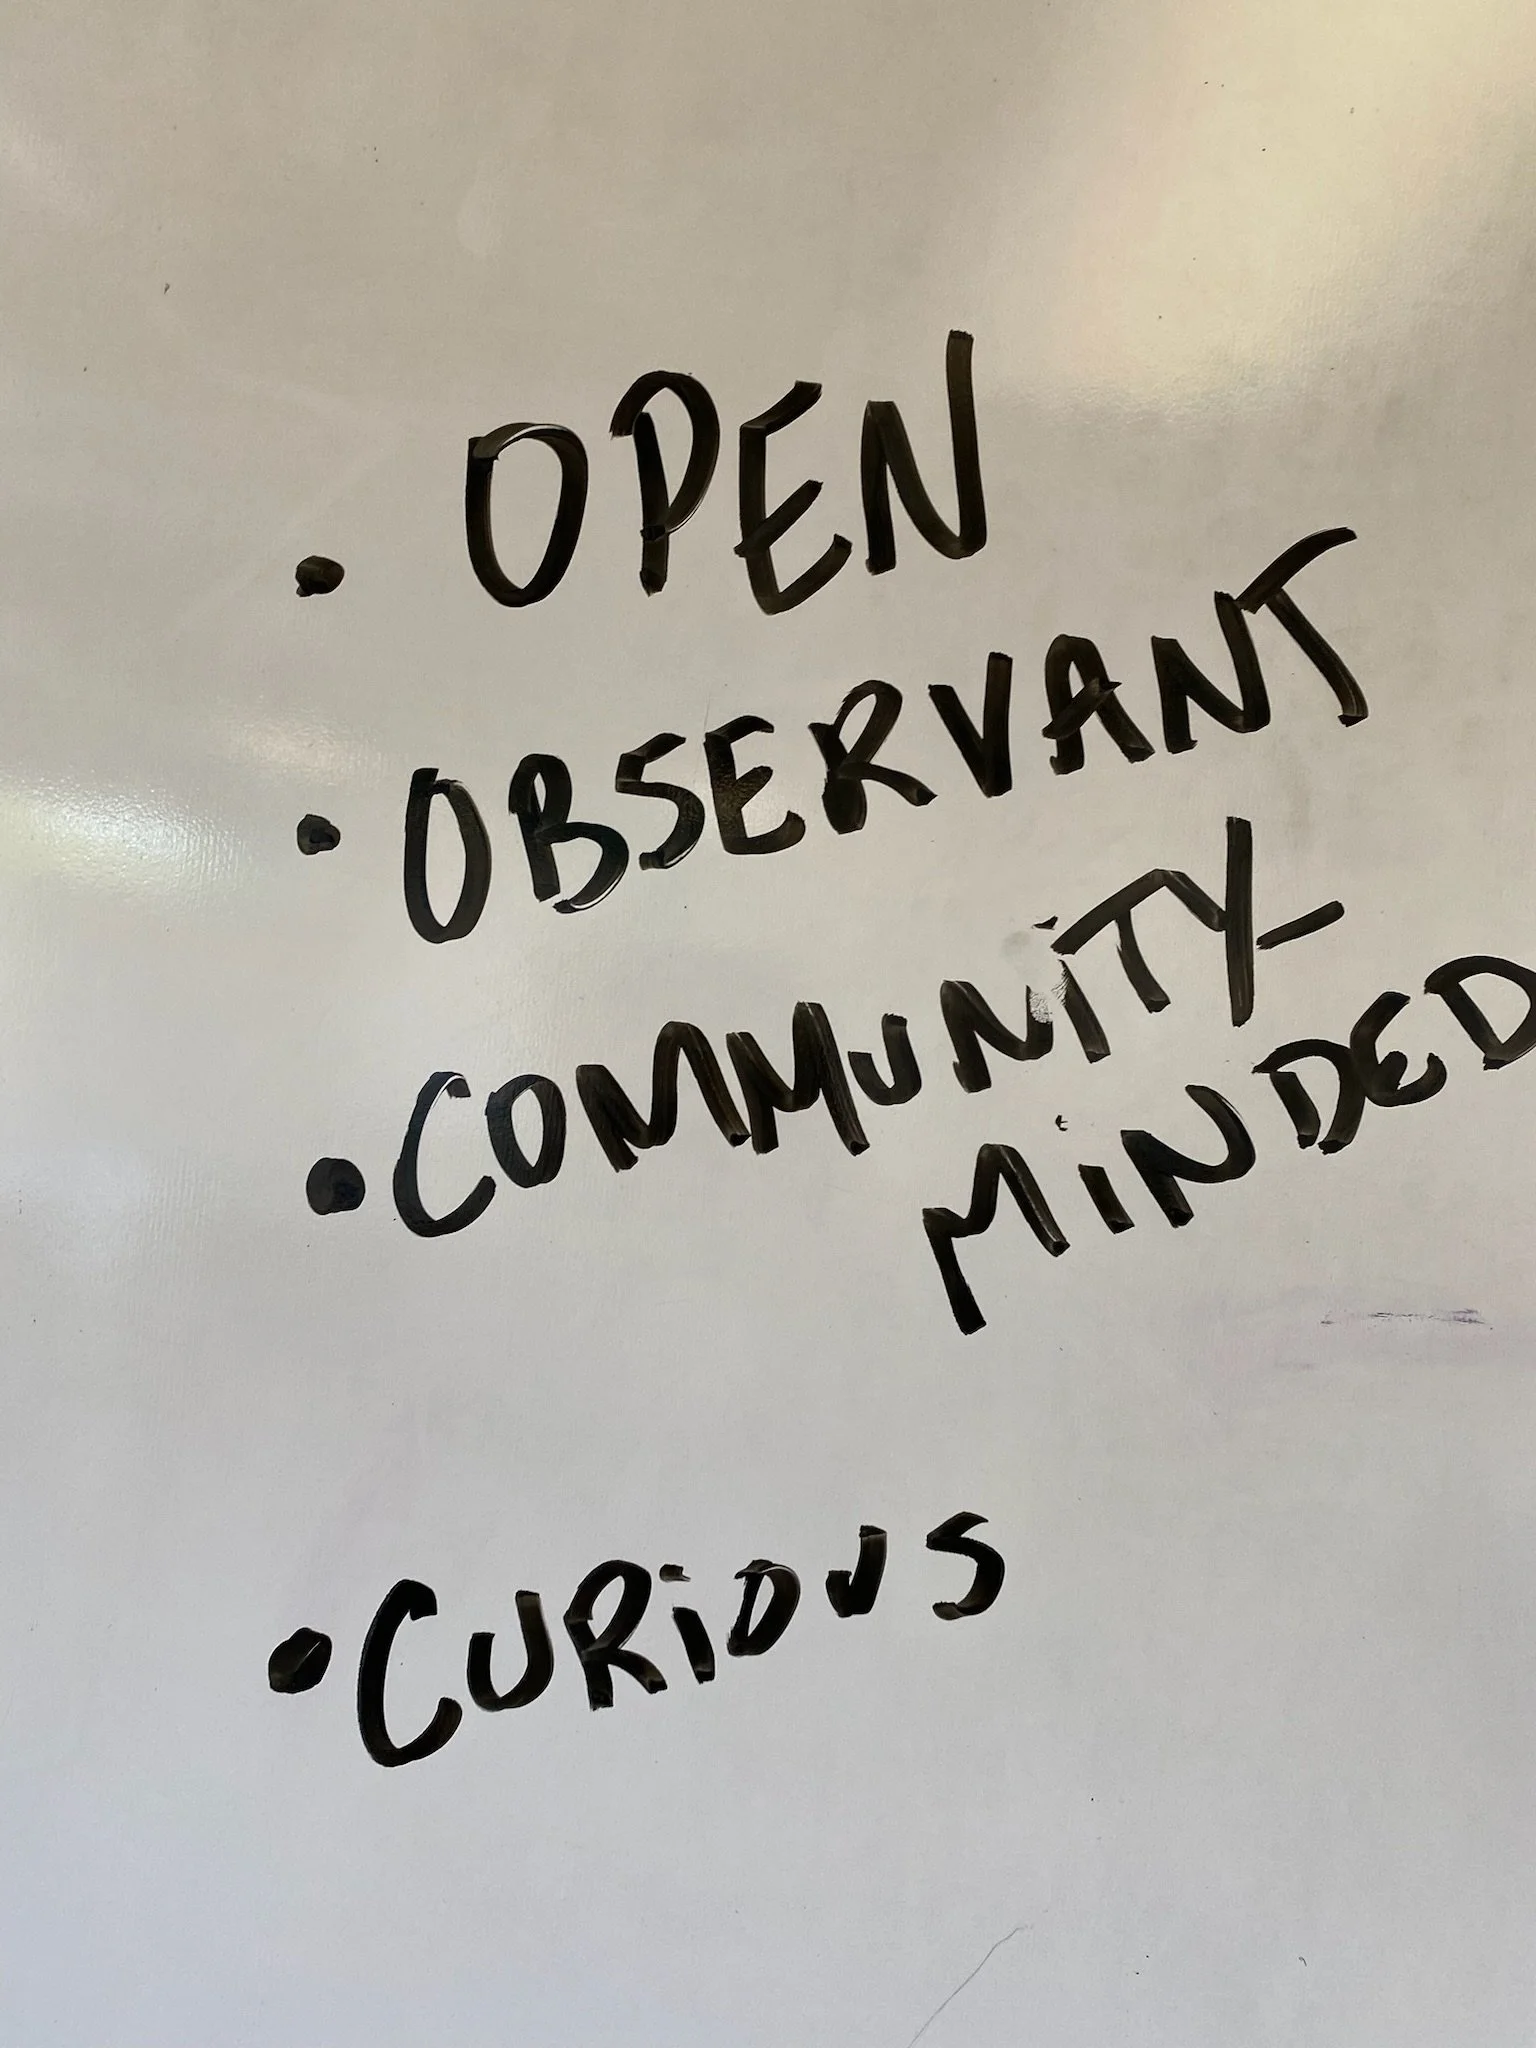 • OPEN
• OBSERVANT
• COMMUNiTY-
MiNDED
• CURiOUS